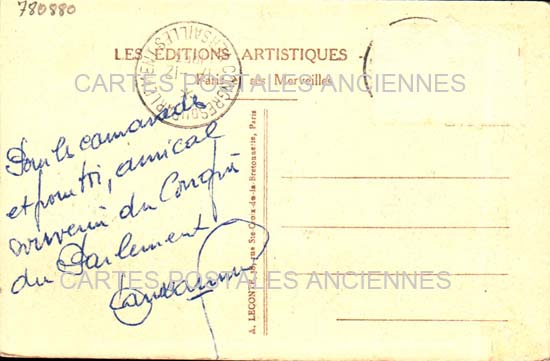 780880
LES ÉDITIONS ARTISTIQUES
CARTES POSTALES ANCIENNES
Paris et ses Merveilles
CONGRES DU PARLEMENT VERSAILLES
Pour les camarades
et pour toi, amical
souvenir du Congrès
du Parlement
CARTES POSTALES ANCIENNES
A. LECONTE, rue Ste-Croix-de-la-Bretonnerie, Paris